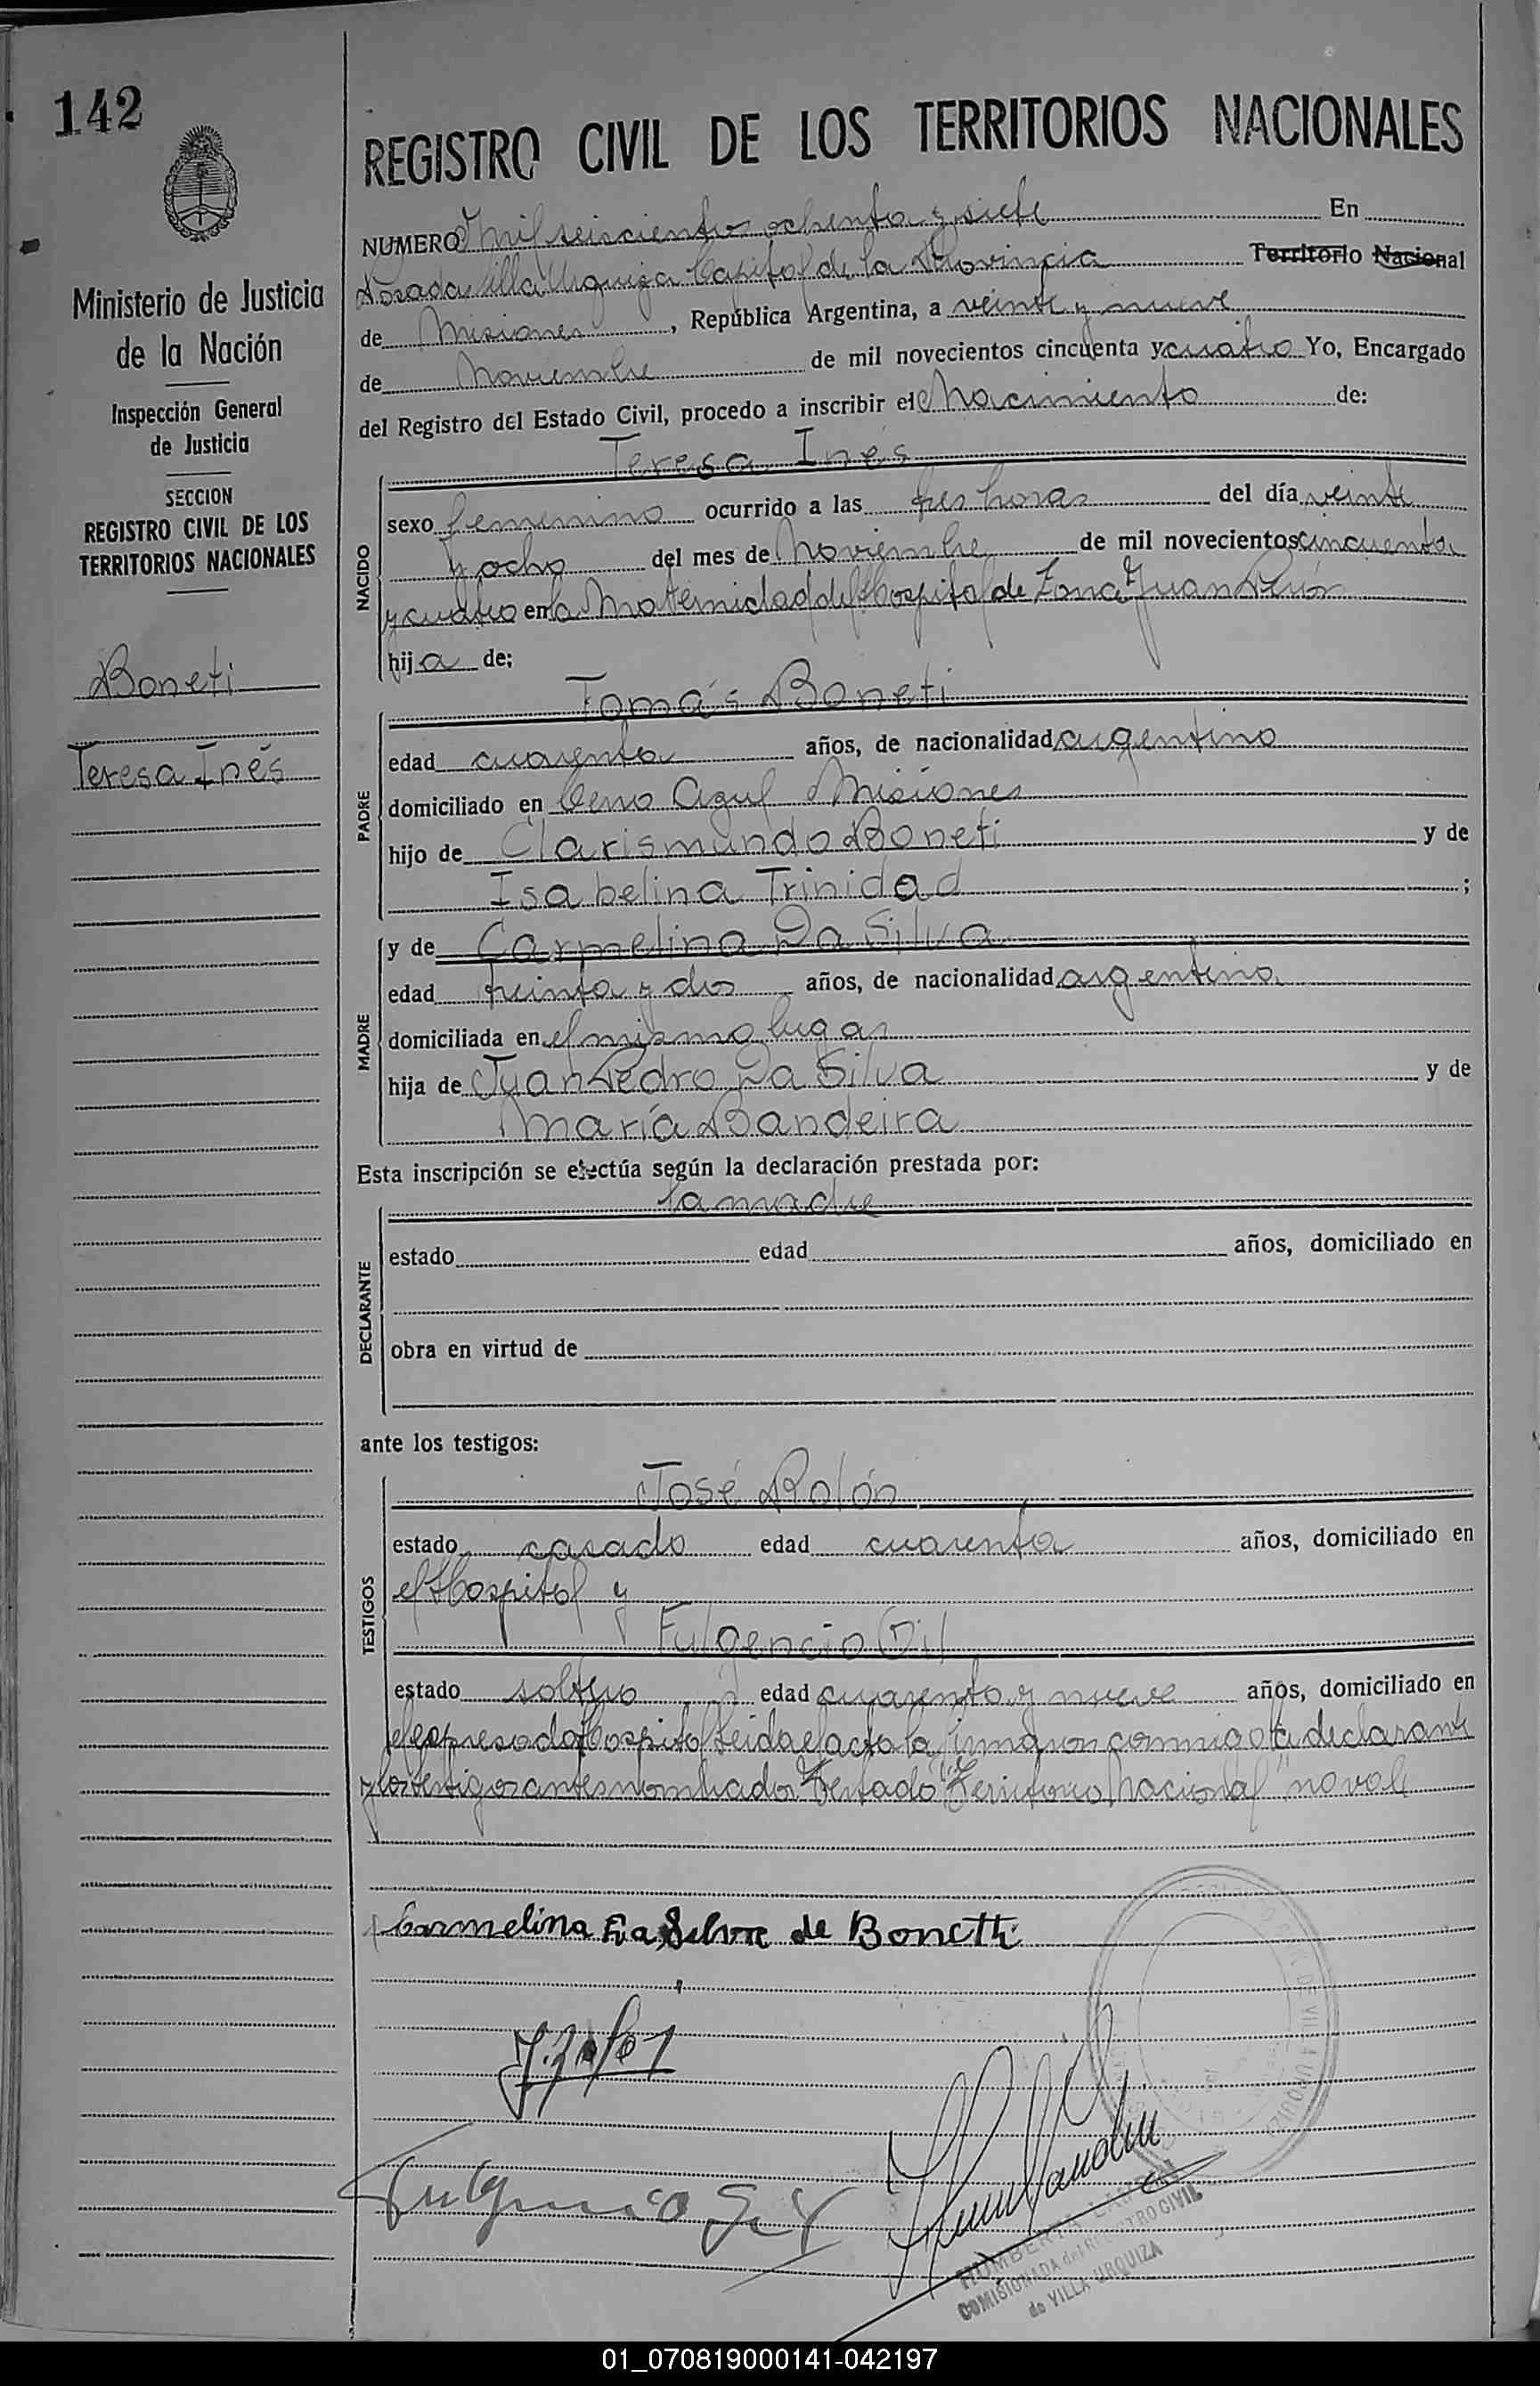 142
REGISTRO CIVIL DE LOS TERRITORIOS NACIONALES
NUMERO Mil seiscientos ochenta y siete En
Posadas Villa Urquiza Capital de la Provincia Territorio Nacional
de Misiones, República Argentina, a veinte y nueve
de Noviembre de mil novecientos cincuenta y cuatro Yo, Encargado
del Registro del Estado Civil, procedo a inscribir el Nacimiento de:
Teresa Inés
NACIDO
sexo femenino ocurrido a las tres horas del día veinte
y ocho del mes de Noviembre de mil novecientos cincuenta
y cuatro en la Maternidad del Hospital de Zona "Juan Perón
hija de;
Tomás Boneti
PADRE
edad cuarenta años, de nacionalidad argentino
domiciliado en Cerro Azul Misiones
hijo de Clarismundo Boneti y de
Isabelina Trinidad ;
MADRE
y de Carmelina Da Silva
edad treinta y dos años, de nacionalidad argentina
domiciliada en el mismo lugar
hija de Juan Pedro Da Silva y de
María Bandeira
Esta inscripción se efectúa según la declaración prestada por:
la madre
DECLARANTE
estado edad años, domiciliado en
obra en virtud de
ante los testigos:
José Rolón
TESTIGOS
estado casado edad cuarenta años, domiciliado en
el Hospital y
Fulgencio Gil
estado soltero edad cuarenta y nueve años, domiciliado en
el expresado Hospital Leida el acta la firmaron conmigo la declarante
y los testigos antes nombrados. Testado "Territorio Nacional" no vale
Carmelina Da Silva de Bonetti
Fulgencio Gil
COMISIONADA del REGISTRO CIVIL
de VILLA URQUIZA
Ministerio de Justicia
de la Nación
Inspección General
de Justicia
SECCION
REGISTRO CIVIL DE LOS
TERRITORIOS NACIONALES
Boneti
Teresa Inés
01_070819000141-042197